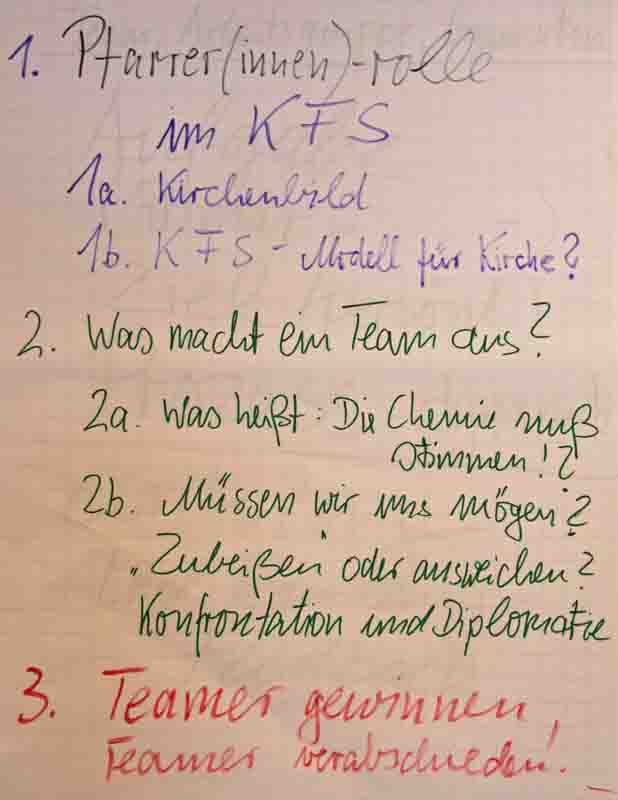 1. Pfarrer(innen)-rolle
im KFS
1a. Kirchenbild
1b. KFS - Modell für Kirche?
2. Was macht ein Team aus?
2a. Was heißt: Die Chemie muß
stimmen!?
2b. Müssen wir uns mögen?
„Zubeißen" oder ausweichen?
Konfrontation und Diplomatie
3. Teamer gewinnen,
Teamer verabschieden!